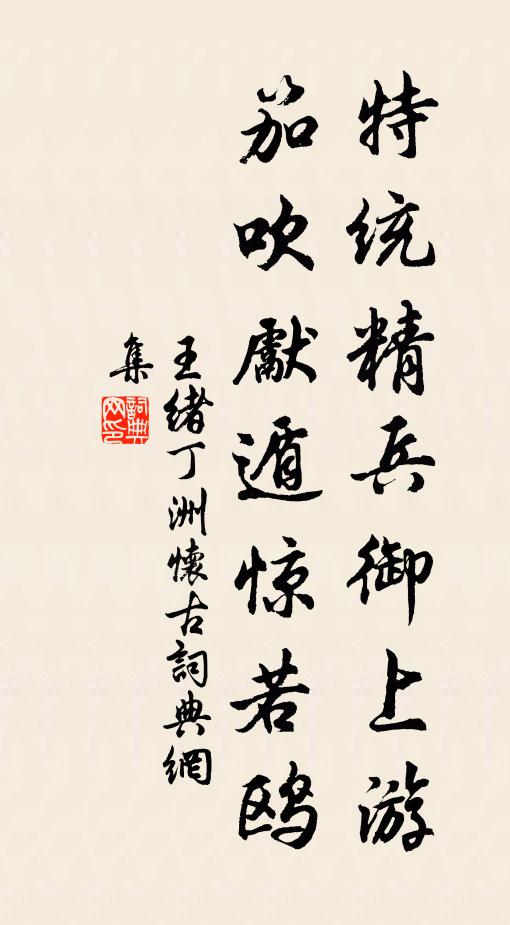 特统精兵御上游
笳吹献遁惊若鸥
王绪丁洲懷古詞典網
集
詞典网印